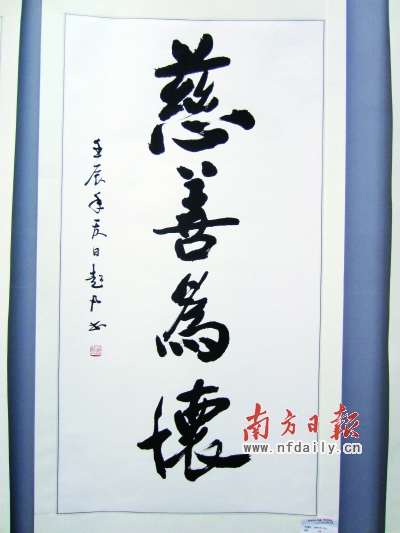 慈善為懷
壬辰年夏日趙
南方日报
www.nfdaily.cn